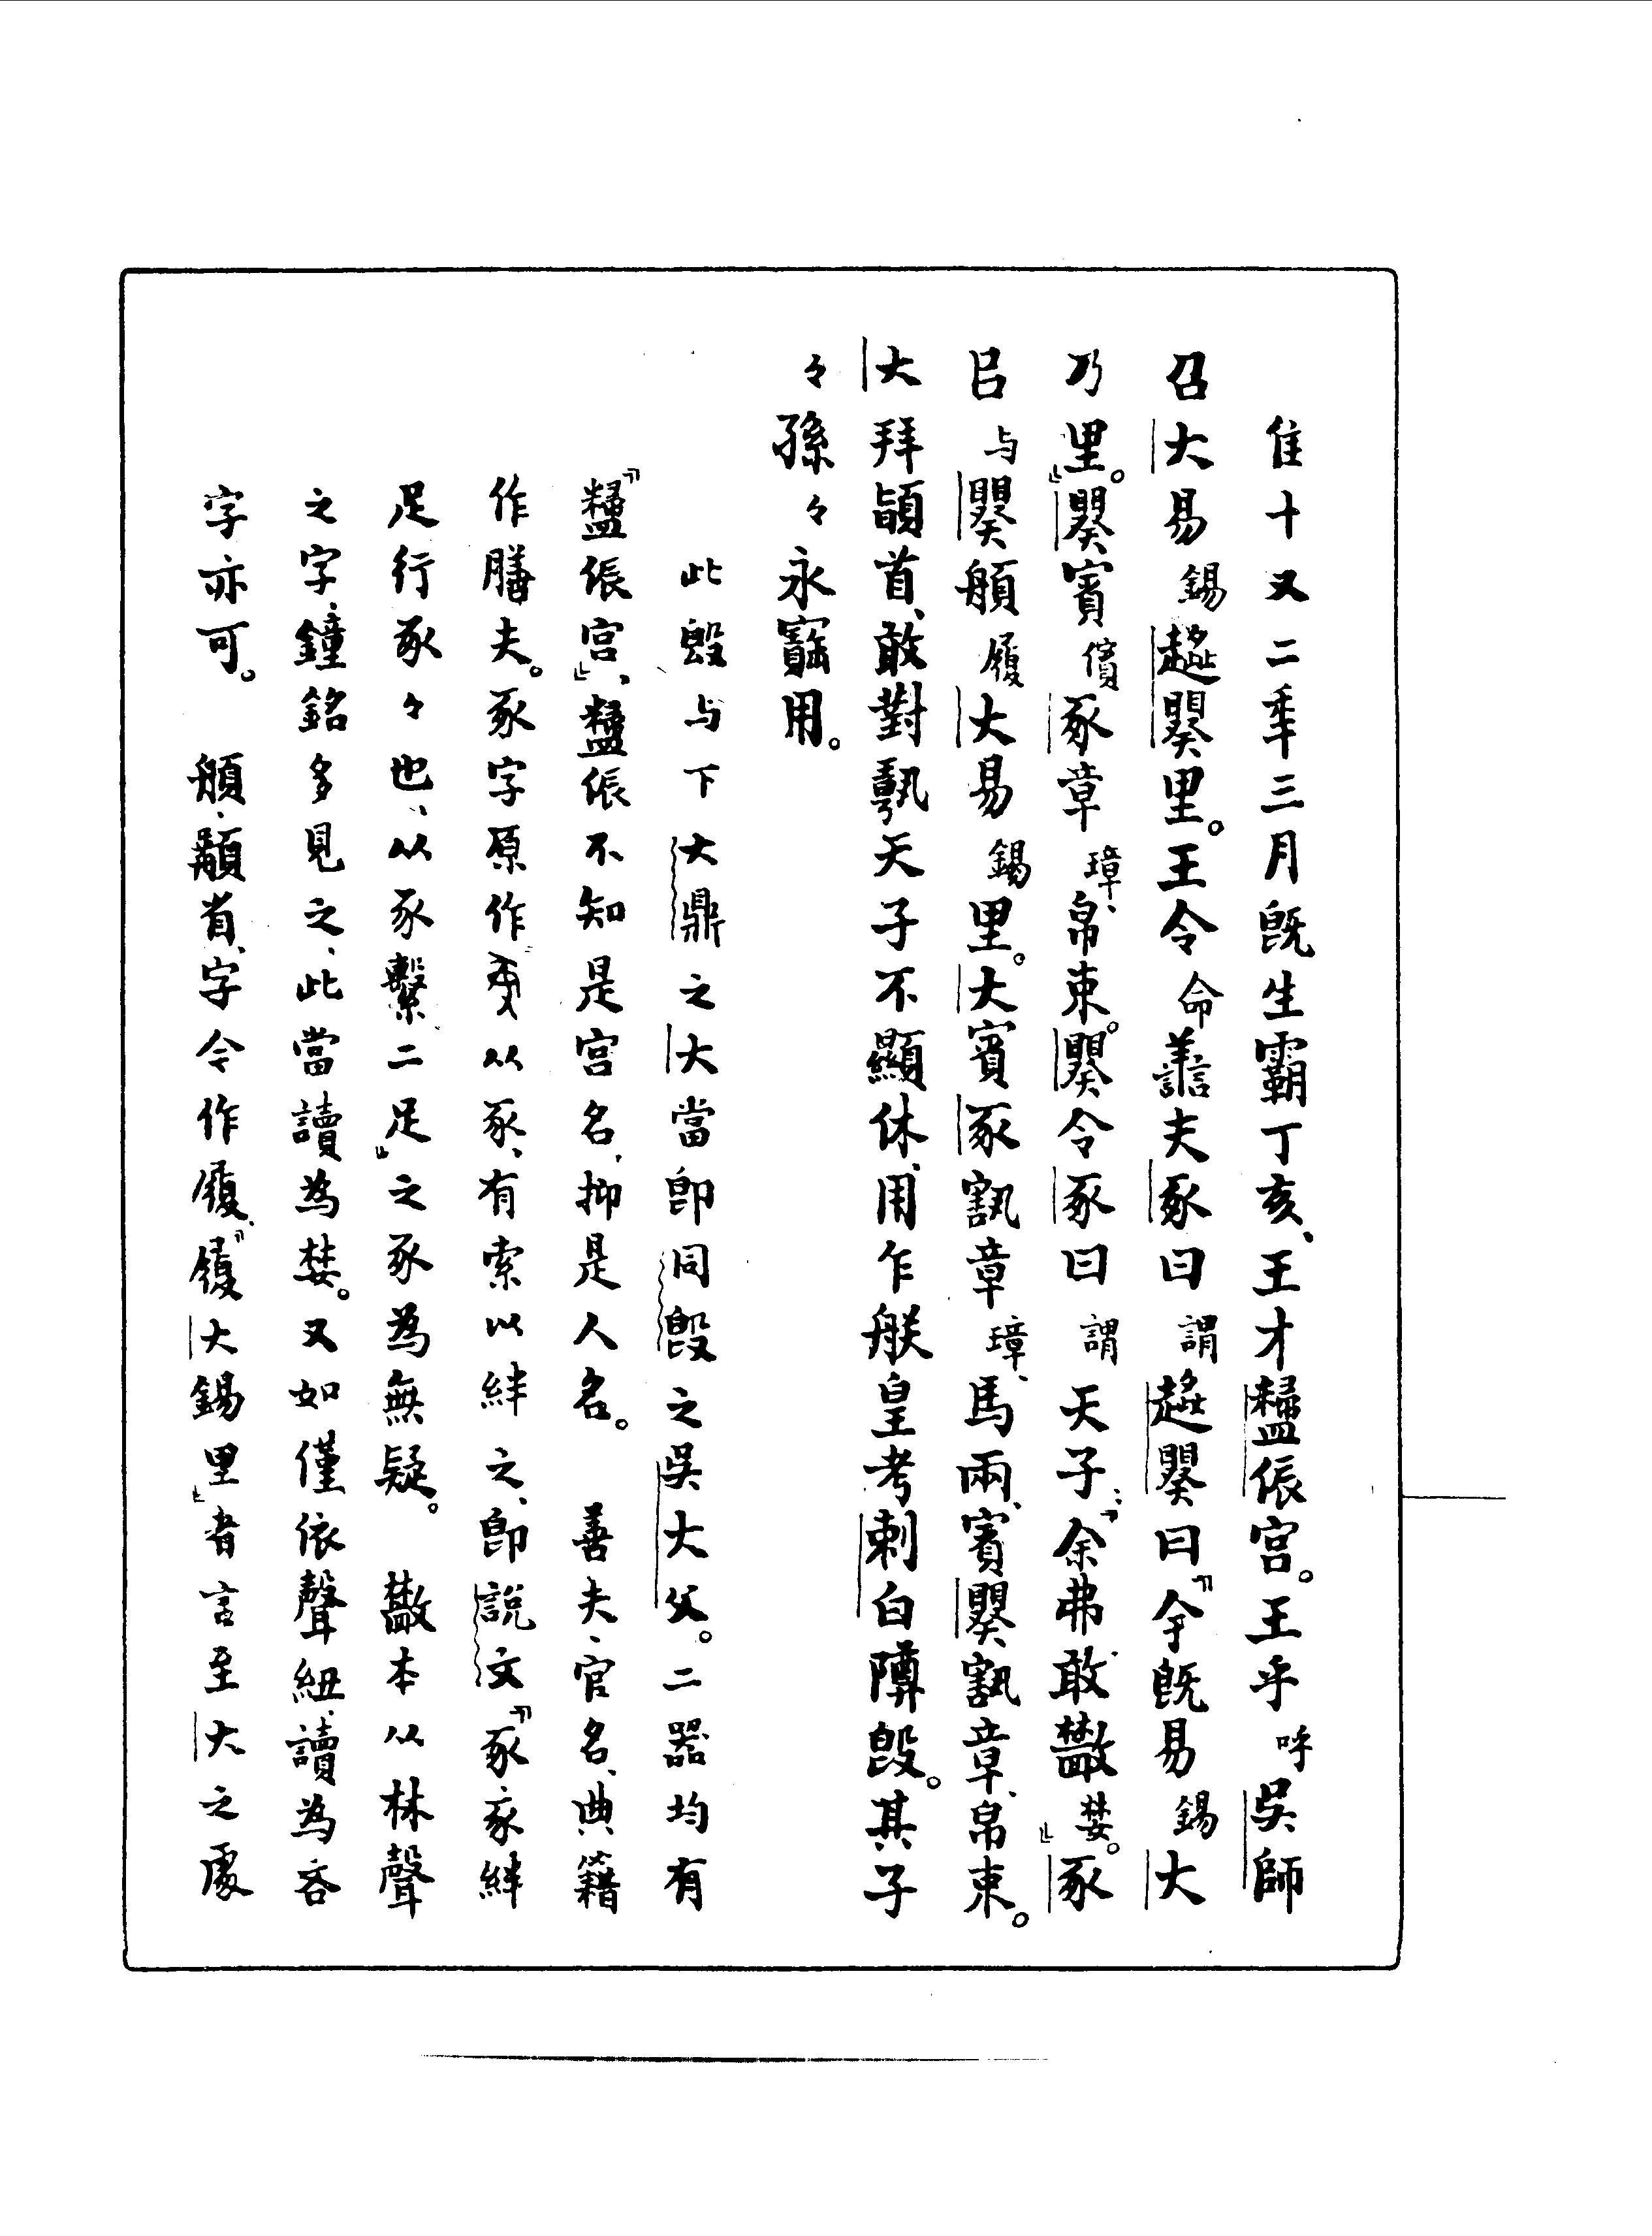 隹十又二年三月旣生霸丁亥、王才䊧侲宮。王乎呼吳師
召大易錫趞睽里。王令命譱夫豖曰謂趞睽曰『余旣易錫大
乃里。』睽賓儐豖章璋、帛束。睽令豖曰謂天子：『余弗敢𢿨婪。』豖
㠯与睽䠱履大易錫里。大賓豖章璋、馬兩、賓睽章、帛束。
大拜䭫首、敢對天子不顯休、用乍朕皇考剌白䵼𣪘。其子
々孫々永寶用。
此𣪘与下大鼎之大當卽同𣪘之吳大父。二器均有
『侲宮』、侲不知是宮名、抑是人名。　善夫、官名、典籍
作膳夫。豖字原作从豕、有索以絆之、卽説文『豖豕絆
足行豖々也、从豕繫二足』之豖爲無疑。　𢿨本从林聲
之字、鐘銘多見之、此當讀爲婪。又如僅依聲紐、讀爲吝
字亦可。　首、字今作履、『履大錫里』者言至大之處